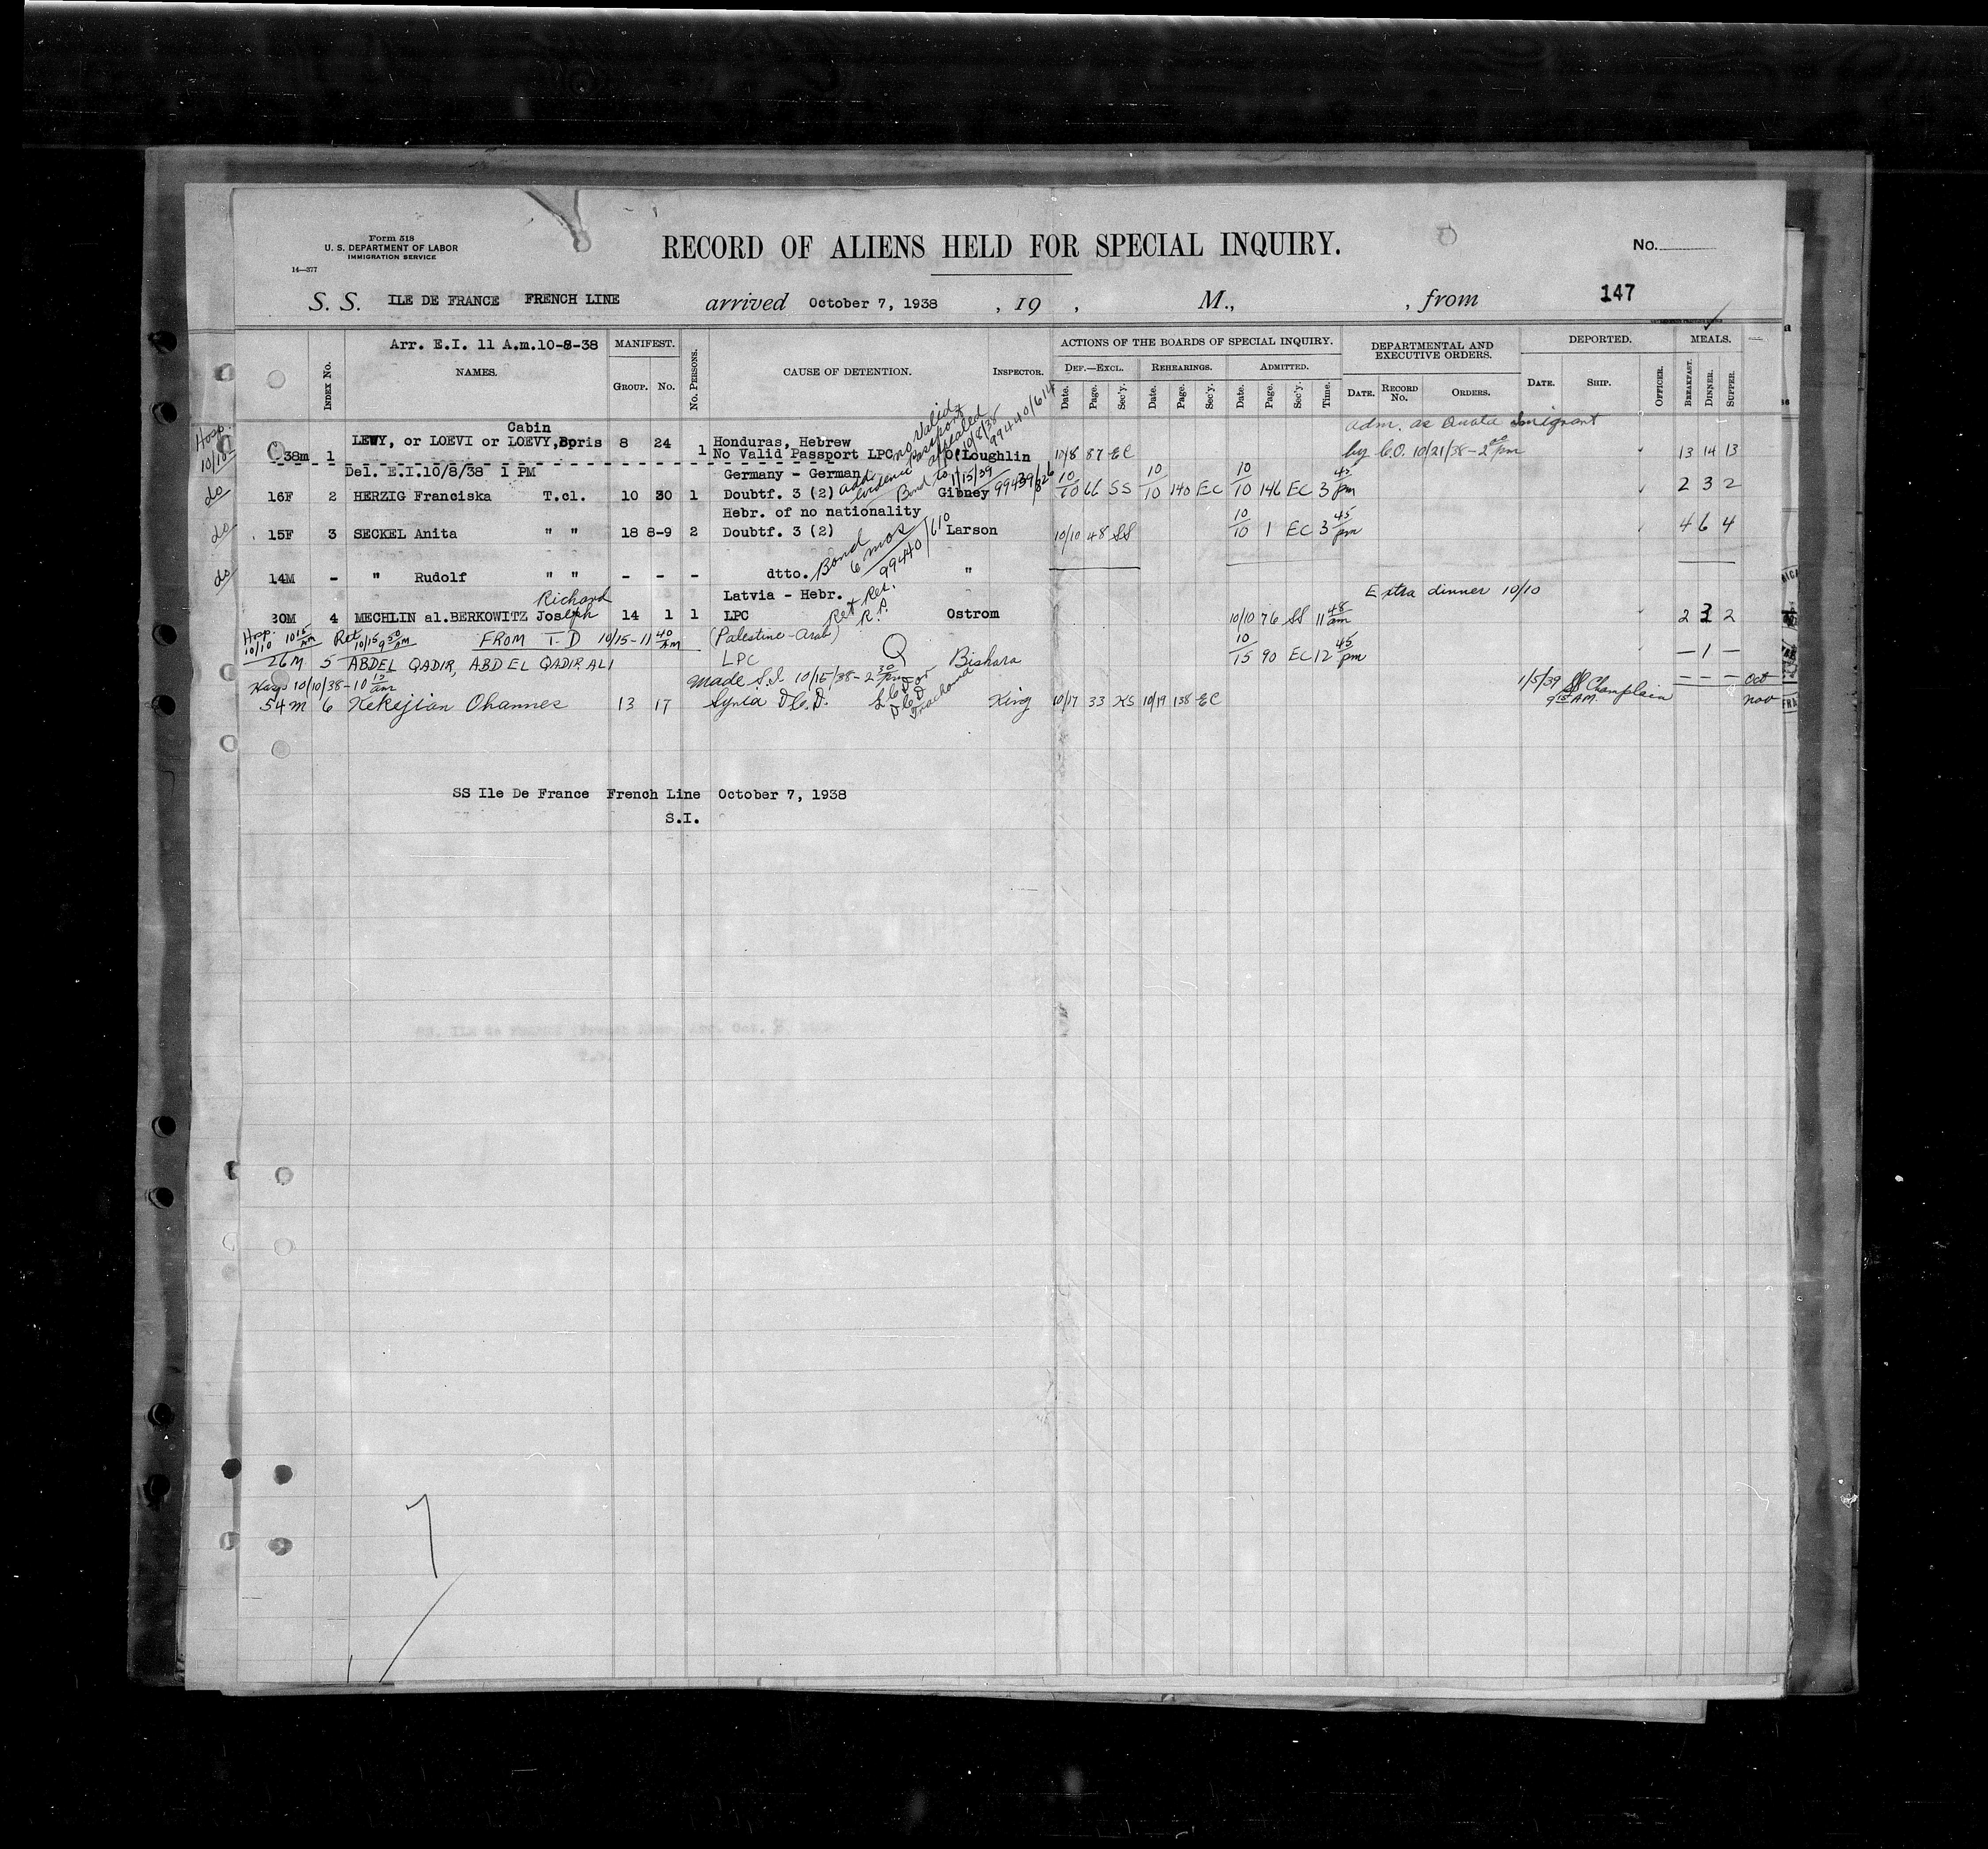 Form 518
U. S. DEPARTMENT OF LABOR
IMMIGRATION SERVICE
14—377
RECORD OF ALIENS HELD FOR SPECIAL INQUIRY.
No.
S. S. ILE DE FRANCE FRENCH LINE arrived October 7, 1938 , 19 , M., , from 147
Arr. E.I. 11 A.m.10-8-38 MANIFEST. ACTIONS OF THE BOARDS OF SPECIAL INQUIRY. DEPARTMENTAL AND EXECUTIVE ORDERS. DEPORTED. MEALS.
INDEX No. NAMES. GROUP. No. No. PERSONS. CAUSE OF DETENTION. INSPECTOR. DEF.—EXCL. REHEARINGS. ADMITTED.
Date. Page. Sec'y. Date. Page. Sec'y. Date. Page. Sec'y. Time. DATE. RECORD No. ORDERS. DATE. SHIP. OFFICER. BREAKFAST. DINNER. SUPPER.
Hosp. 10/10
no valid passport appealed 10/8/38 99440/614
Cabin adm. as Quota Imigrant
38m 1 LEWY, or LOEVI or LOEVY, Boris 8 24 1 Honduras, Hebrew
No Valid Passport LPC O'Loughlin 10/8 87 EC by C.O. 10/21/38 - 2 00 pm 13 14 13
Del. E.I.10/8/38 1 PM Germany - German
Bond to 1/15/39 99439/326
do 16F 2 HERZIG Franciska T.cl. 10 30 1 Doubtf. 3 (2) Gibney 10/10 66 SS 10/10 140 EC 10/10 146 EC 3 45 pm 2 3 2
Hebr. of no nationality
do 15F 3 SECKEL Anita " " 18 8-9 2 Doubtf. 3 (2) Larson 10/10 48 SS 10/10 1 EC 3 45 pm 4 6 4
Bond 6 mos 99440/610
do 14M - " Rudolf " " - - - dtto. "
Richard Latvia - Hebr. Extra dinner 10/10
30M 4 MECHLIN al.BERKOWITZ Joseph 14 1 1 LPC Ostrom 10/10 76 SS 11 48 am 2 3 2
Hosp. 10/10 10 15 AM Ret 10/15 9 50 AM FROM T. D 10/15 - 11 40 AM (Palestine - Arab)
26M 5 ABDEL QADIR, ABDEL QADIR ALI LPC Q Bishara 10/15 90 EC 12 45 pm — 1 —
made S.I. 10/15/38 - 2 30 pm
1/5/39 SS Champlain 9 15 AM. — — — Oct
54m 6 Kekejian Ohannes 13 17 Syria D.C.D. Trachoma King 10/17 33 KS 10/19 138 EC Nov
SS Ile De France French Line October 7, 1938
S.I.